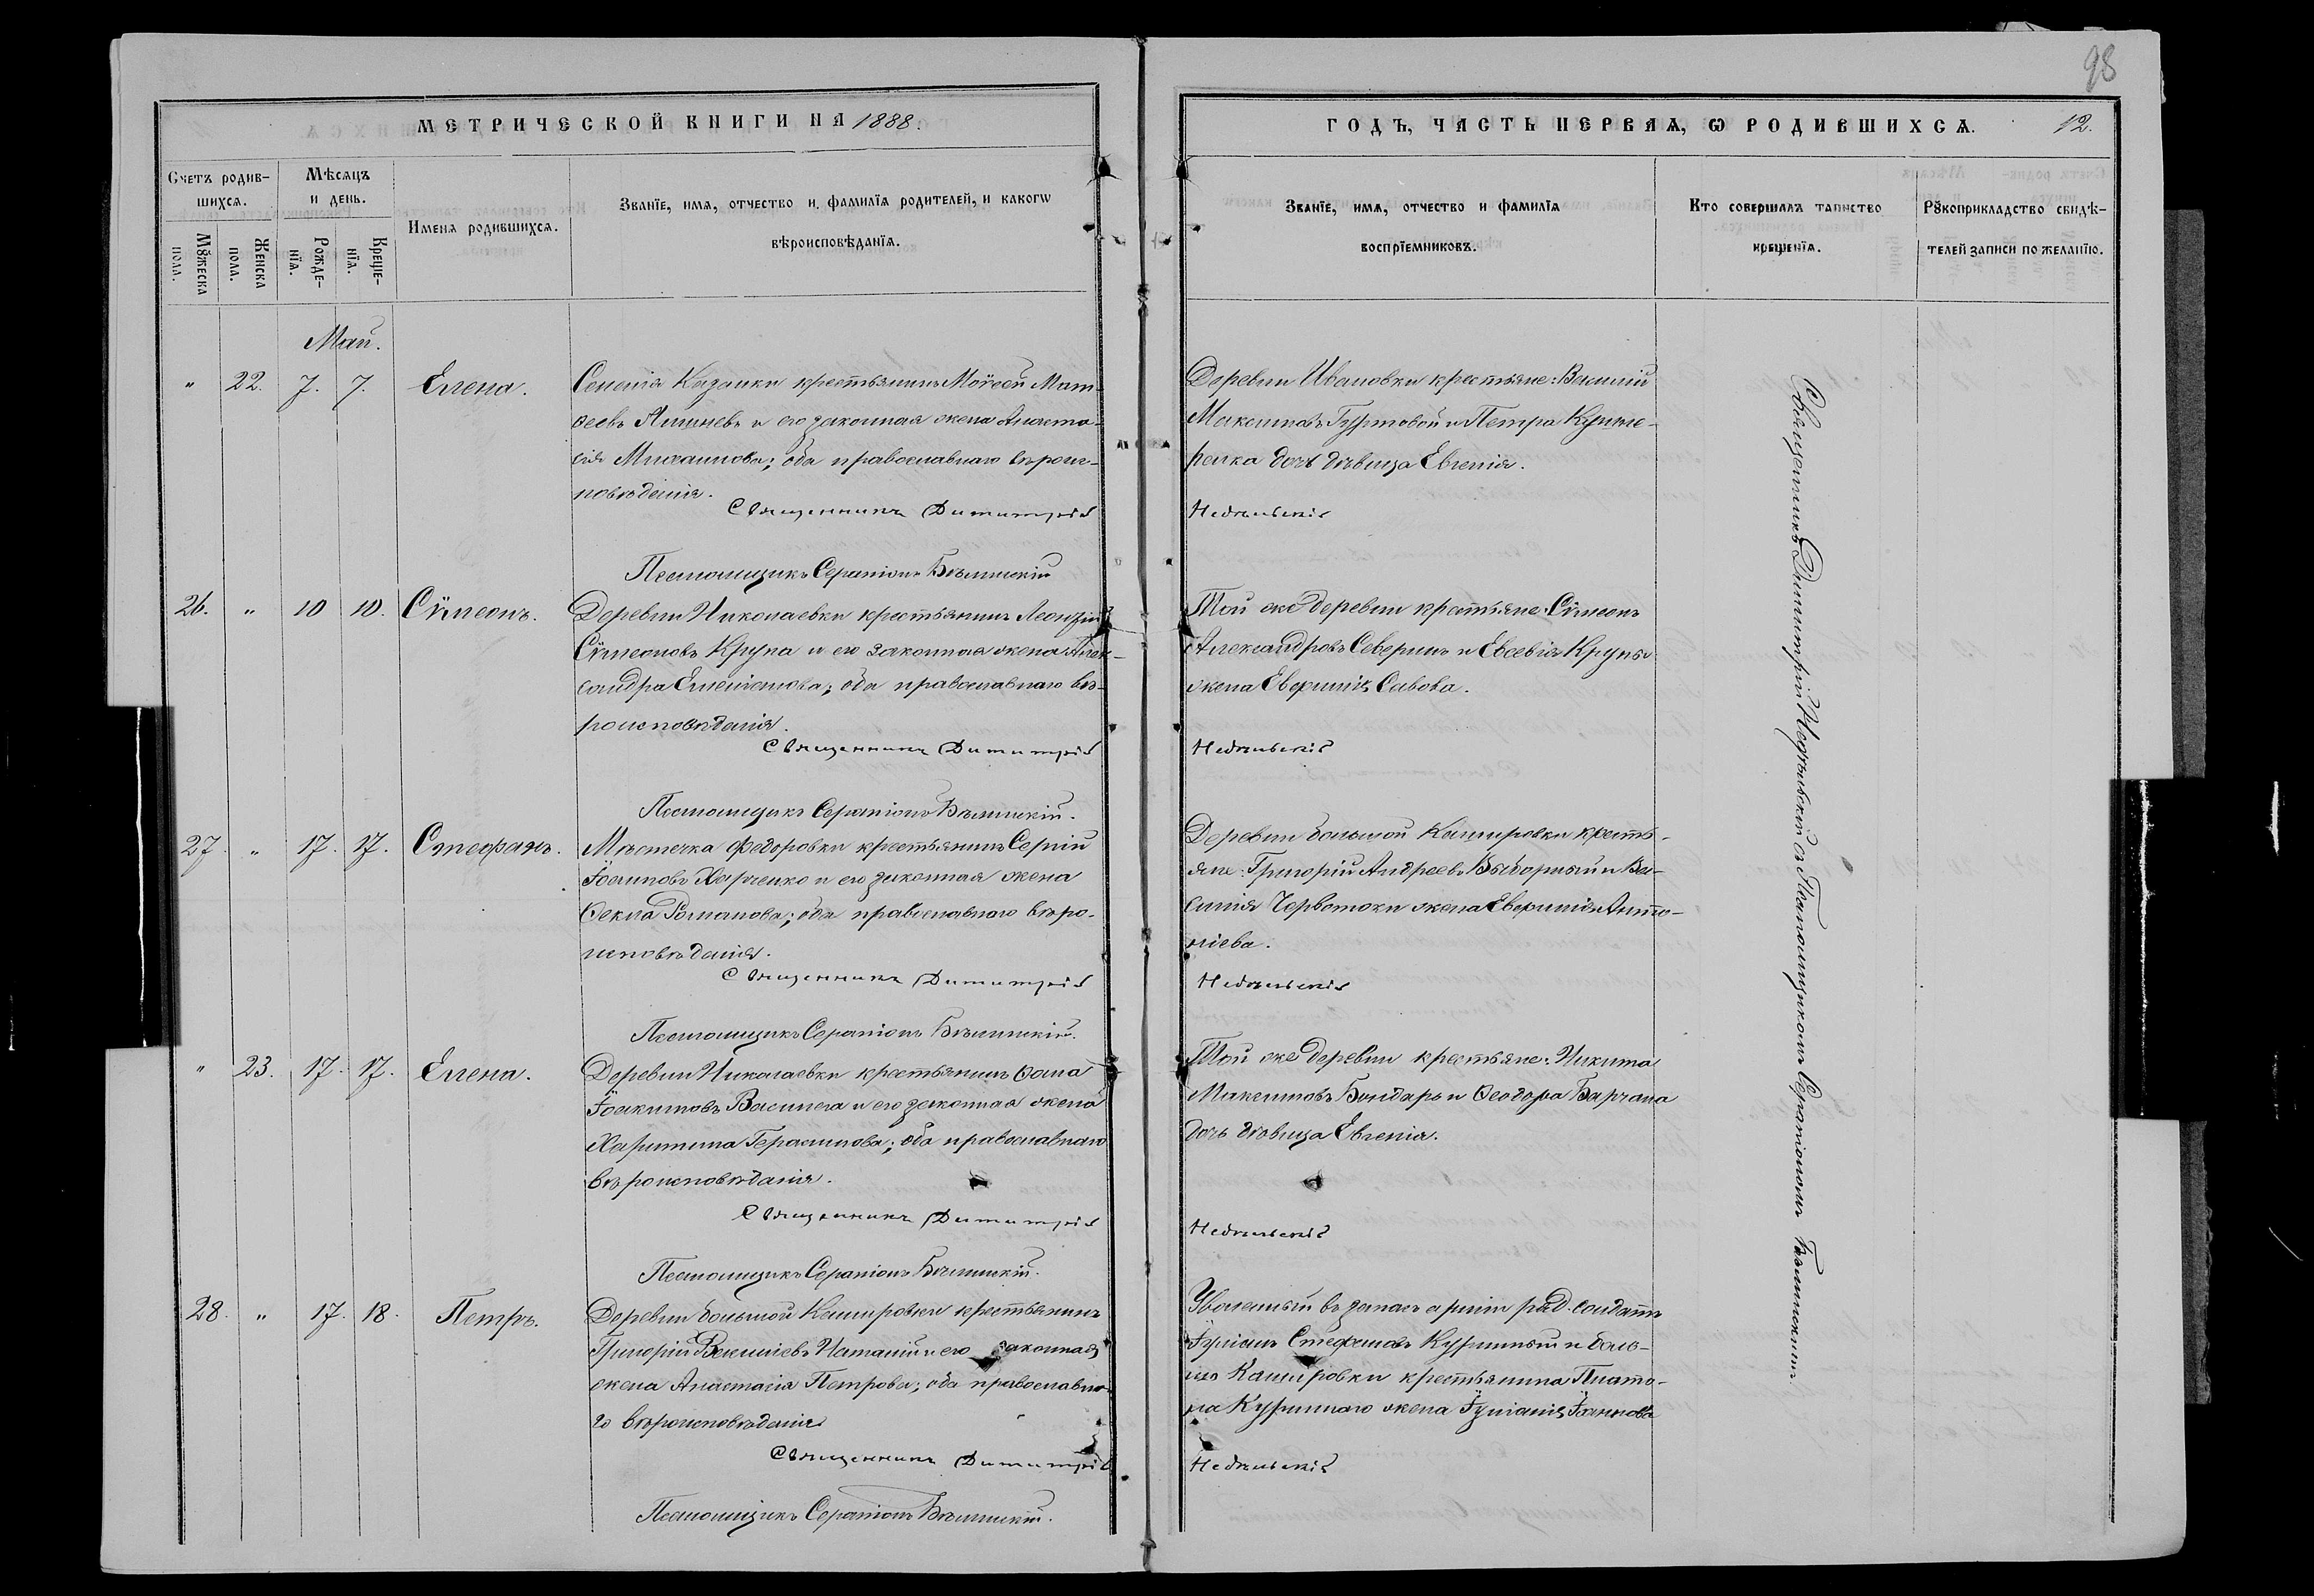 98
МЕТРИЧЕСКОЙ КНИГИ НА 1888.
ГОДЪ, ЧАСТЬ ПЕРВАЯ, Ѡ РОДИВШИХСЯ. 12.
Счетъ родив-
шихся.
Мѣсяцъ
и день.
Мꙋжеска
пола.
Женска
пола.
Рожде-
нїя.
Креще-
нїя.
Имена родившихся.
Званїе, имя, отчество и фамилїя родителей, и какогѡ
вѣроисповѣданїя.
Званїе, имя, отчество и фамилїя
воспрїемниковъ.
Кто совершалъ таинство
крещенїя.
Рꙋкоприкладство свидѣ-
телей записи по желанїю.
Май.
" 22. 7. 7. Елена.
Селенія Казанки крестьянинъ Моѵсей Мат-
ѳеевъ и его законная жена Анаста-
сія Михаилова; оба православнаго вѣроис-
повѣданія.
Священникъ Димитрій
Псаломщикъ Серапіонъ Бѣлинскій
Деревни Ивановки крестьяне: Василій
Максимовъ Гуртовой и Петра Кушне-
ренка дочь дѣвица Евгенія.
Недѣльскій
26. " 10 10. Сѵмеонъ.
Деревни Николаевки крестьянинъ Леонтій
Сѵмеоновъ Крупа и его законная жена Алек-
сандра Емеліанова; оба православнаго вѣ-
роисповѣданія.
Священникъ Димитрій
Псаломщикъ Серапіонъ Бѣлинскій.
Той же деревни крестьяне: Сѵмеонъ
Александровъ Северинъ и Евсевія Крупы
жена Евфимія Савова.
Недѣльскій
27. " 17. 17. Стефанъ.
Мѣстечка Федоровки крестьянинъ Сергій
Іоанновъ Харченко и его законная жена
Ѳекла Романова; оба православнаго вѣро-
исповѣданія.
Священникъ Димитрій
Псаломщикъ Серапіонъ Бѣлинскій.
Деревни большой Кашировки кресть-
яне: Григорій Андреевъ Выборный и Ва-
силія Червотоки жена Евфимія Анто-
ніева.
Недѣльскій
" 23. 17. 17. Елена.
Деревни Николаевки крестьянинъ Ѳома
Іоакимовъ Василега и его законная жена
Харитина Герасимова; оба православнаго
вѣроисповѣданія.
Священникъ Димитрій
Псаломщикъ Серапіонъ Бѣлинскій.
Той же деревни крестьяне: Никита
Максимовъ Бондарь и Ѳеодора Баргана
дочь дѣвица Евгенія.
Недѣльскій
28. " 17. 18. Петръ.
Деревни большой Кашировки крестьянинъ
Григорій Василіевъ и его законная
жена Анастасія Петрова; оба православна-
го вѣроисповѣданія
Священникъ Димитрій
Псаломщикъ Серапіонъ Бѣлинскій.
Уволенный въ запасъ арміи ряд. солдатъ
Іуліанъ Стефановъ Куринный и боль-
шой Кашировки крестьянина Плато-
на Куриннаго жена Іуліанія Іоаннова
Недѣльскій
Священникъ Димитрій Недѣльскій съ Псаломщикомъ Серапіономъ Бѣлинскимъ.